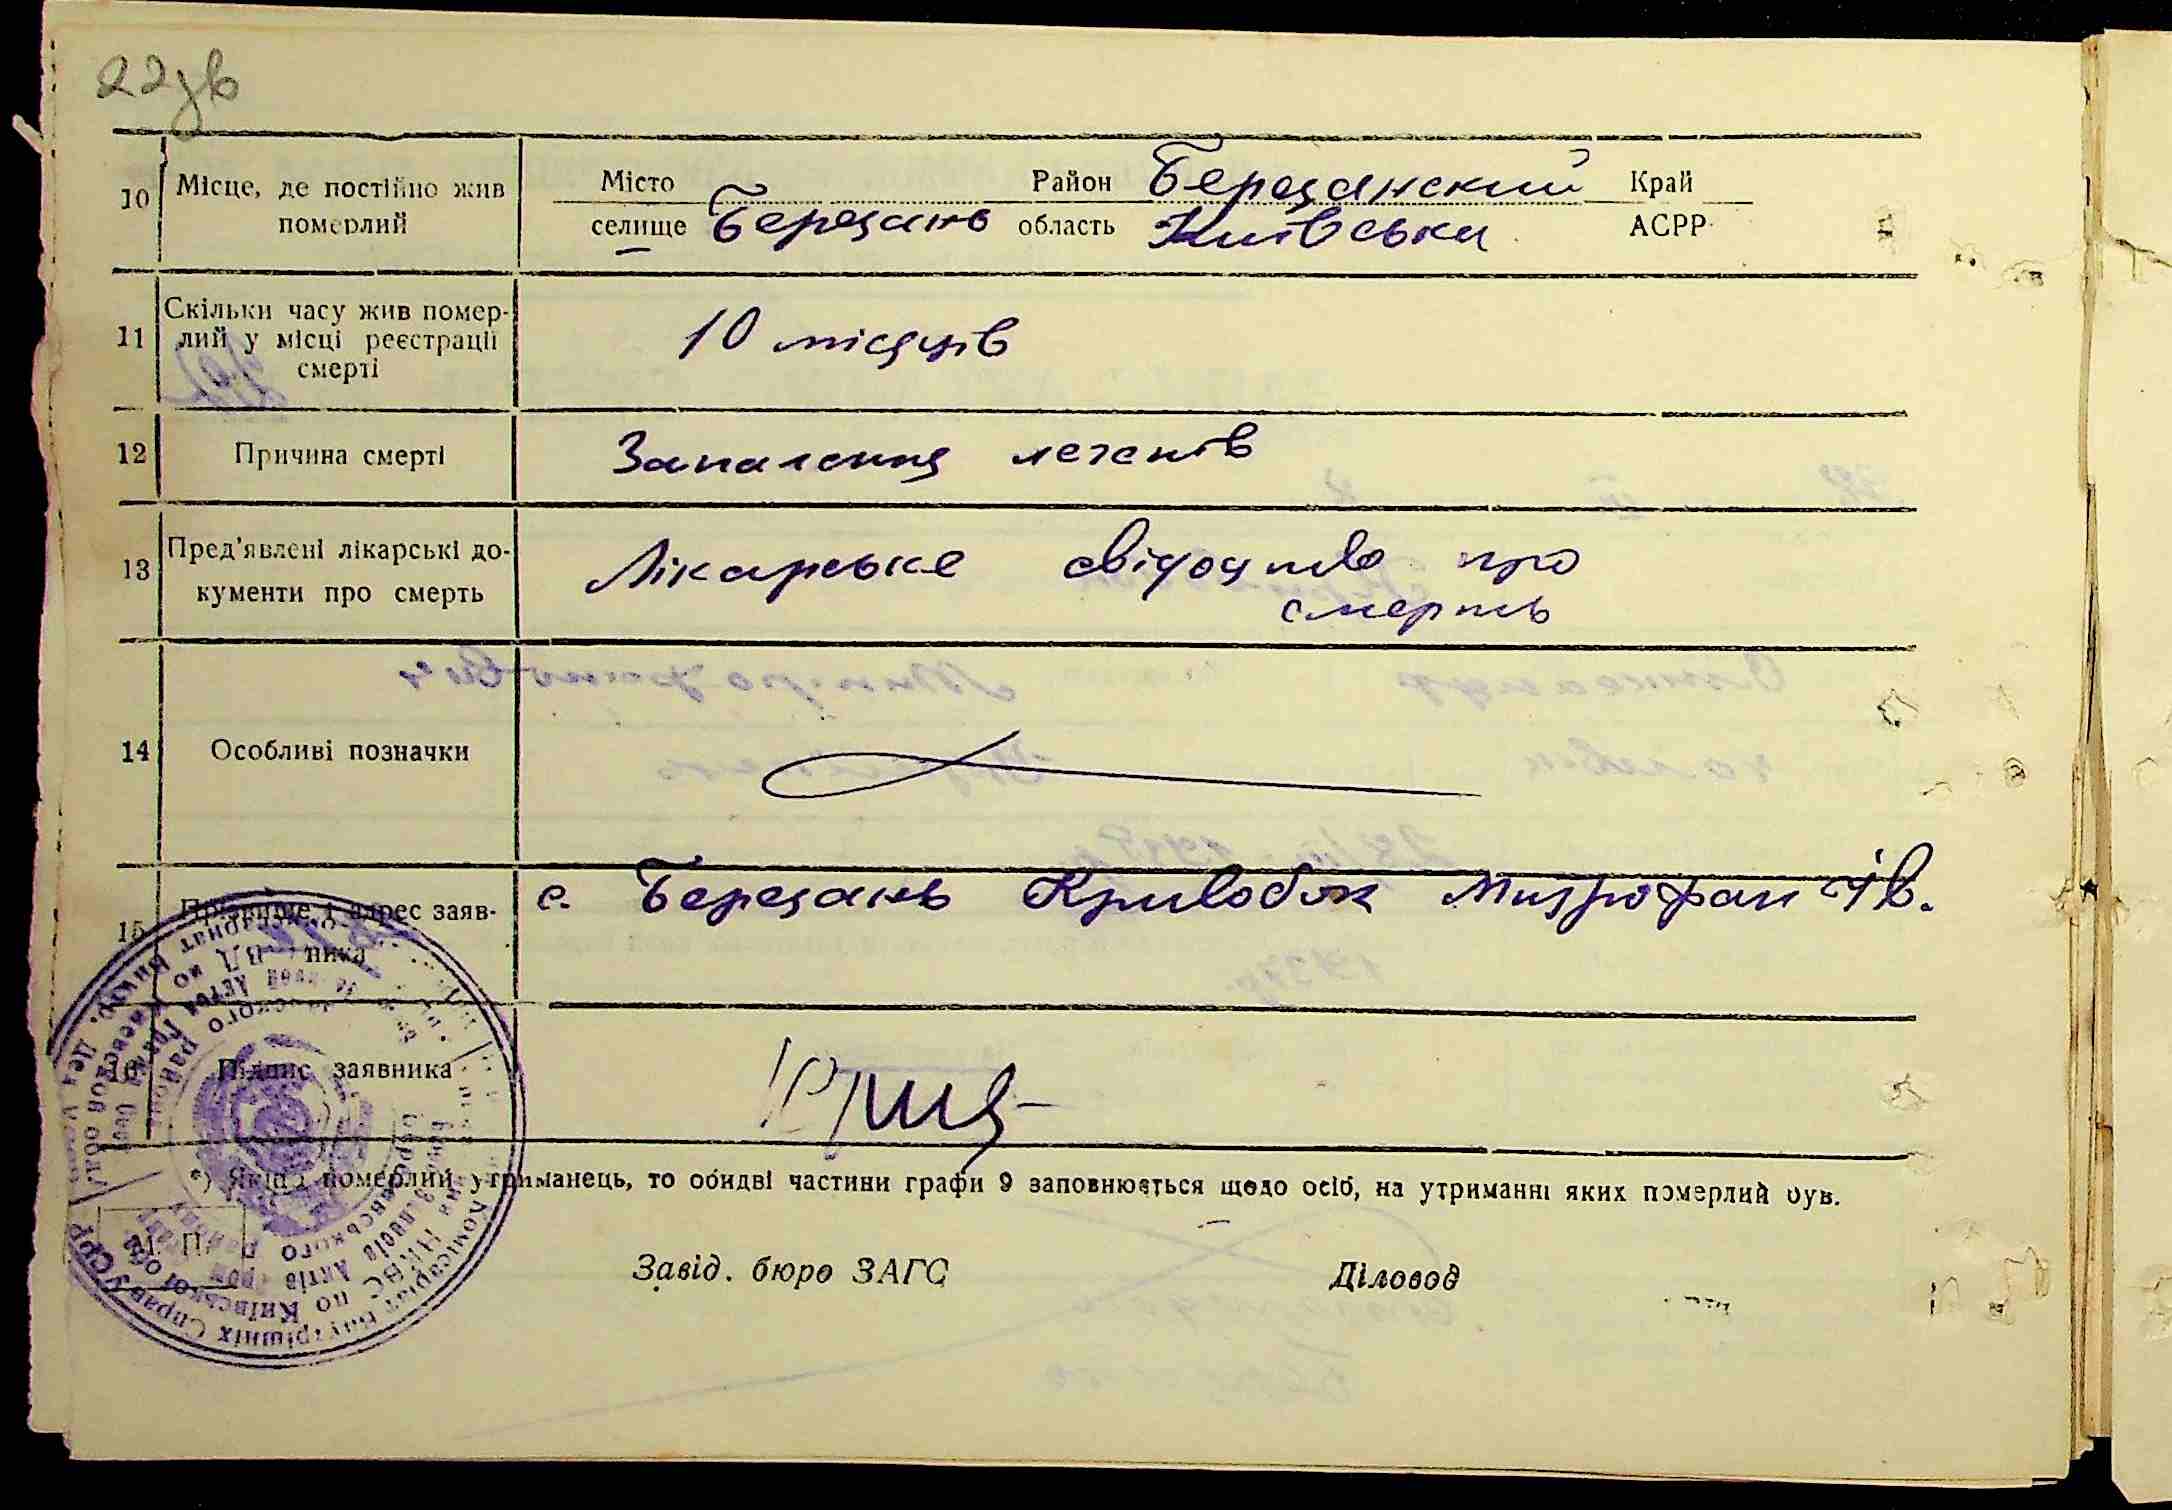 22зв
10 Місце, де постійно жив померлий
Місто Район Березанский Край
селище Березань область Київська АСРР
11 Скільки часу жив помер-
лий у місці реєстрації
смерті
10 місяців
12 Причина смерті Запалення легенів
13 Пред’явлені лікарські до-
кументи про смерть
Лікарське свідоцтво про
смерть
14 Особливі позначки
15 Прізвище і адрес заяв-
ника
с. Березань Кривобок Митрофан Ів.
16 Підпис заявника
*) Якщо померлий утриманець, то обидві частини графи 9 заповнюється щодо осіб, на утриманні яких померлий був.
М. П.
Завід. бюро ЗАГС Діловод